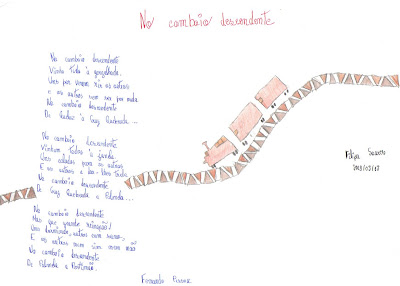 No comboio descendente
No comboio descendente
Vinha tudo à gargalhada.
Uns por verem rir os outros
E os outros sem ser por nada
No comboio descendente
De Queluz à Cruz Quebrada...
No comboio descendente
Vinham todos à janela
Uns calados para os outros
E os outros a dar-lhes trela
No comboio descendente
De Cruz Quebrada a Palmela...
No comboio descendente
Mas que grande reinação!
Uns dormindo, outros com sono,
E os outros nem sim nem não
No comboio descendente
De Palmela a Portimão.
Fernando Pessoa